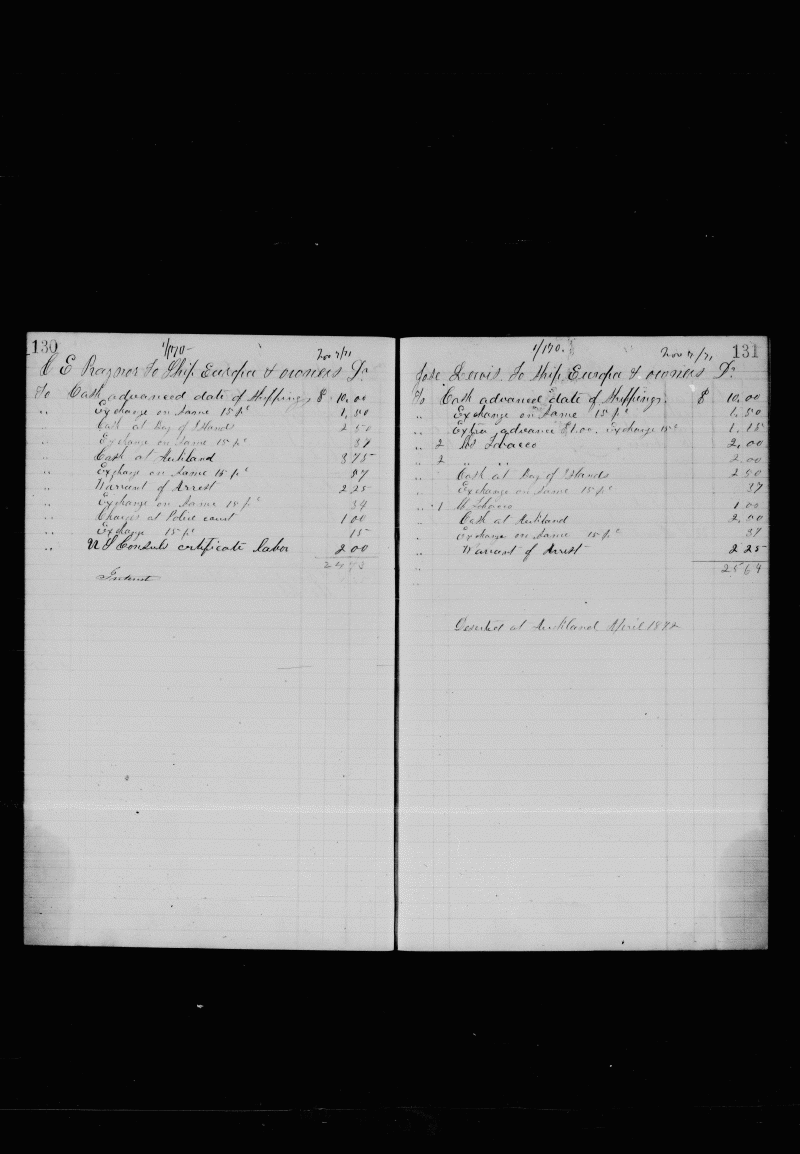 130
1/170 Nov 7/71
C E Raynor To Ship Europa & owners Dr
To Cash advanced date of Shipping $ 10,00
" Exchange on Same 15 pc 1,50
" Cash at Bay of Islands 2 50
" Exchange on Same 15 pc 37
" Cash at Aukland 3 75
" Exchange on Same 15 pc 57
" Warrant of Arrest 2 25
" Exchange on Same 15 pc 34
" Charges at Police court 1 00
" Exchange 15 pc 15
" U S Consuls certificate labor 2 00
24 73
131
1/170. Nov 7/71
Jose Lewis To Ship Europa & owners Dr
To Cash advanced date of Shipping. $ 10,00
" Exchange on Same 15 pc 1,50
" Extra advance $1.00. Exchange 15c 1.15
" 2 lbs Tobacco 2,00
" 2 " " 2 00
" Cash at Bay of Islands 2 50
" Exchange on Same 15 pc 37
" 1 lb Tobacco 1 00
" Cash at Aukland 2,50
" Exchange on Same 15 pc 37
" Warrant of Arrest 2 25
" 25 64
Deserted at Aukland April 1872